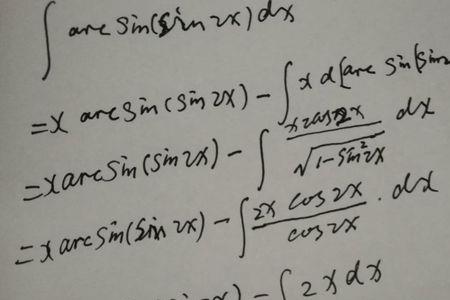 ∫ arc sin(sin 2x) dx
= x arc sin (sin 2x) − ∫ x d[arc sin (sin
= x arc sin (sin 2x) − ∫ x2cos2x / √(1−sin²2x) dx
= x arc sin (sin 2x) − ∫ 2x cos 2x / cos 2x · dx
− ∫ 2x dx